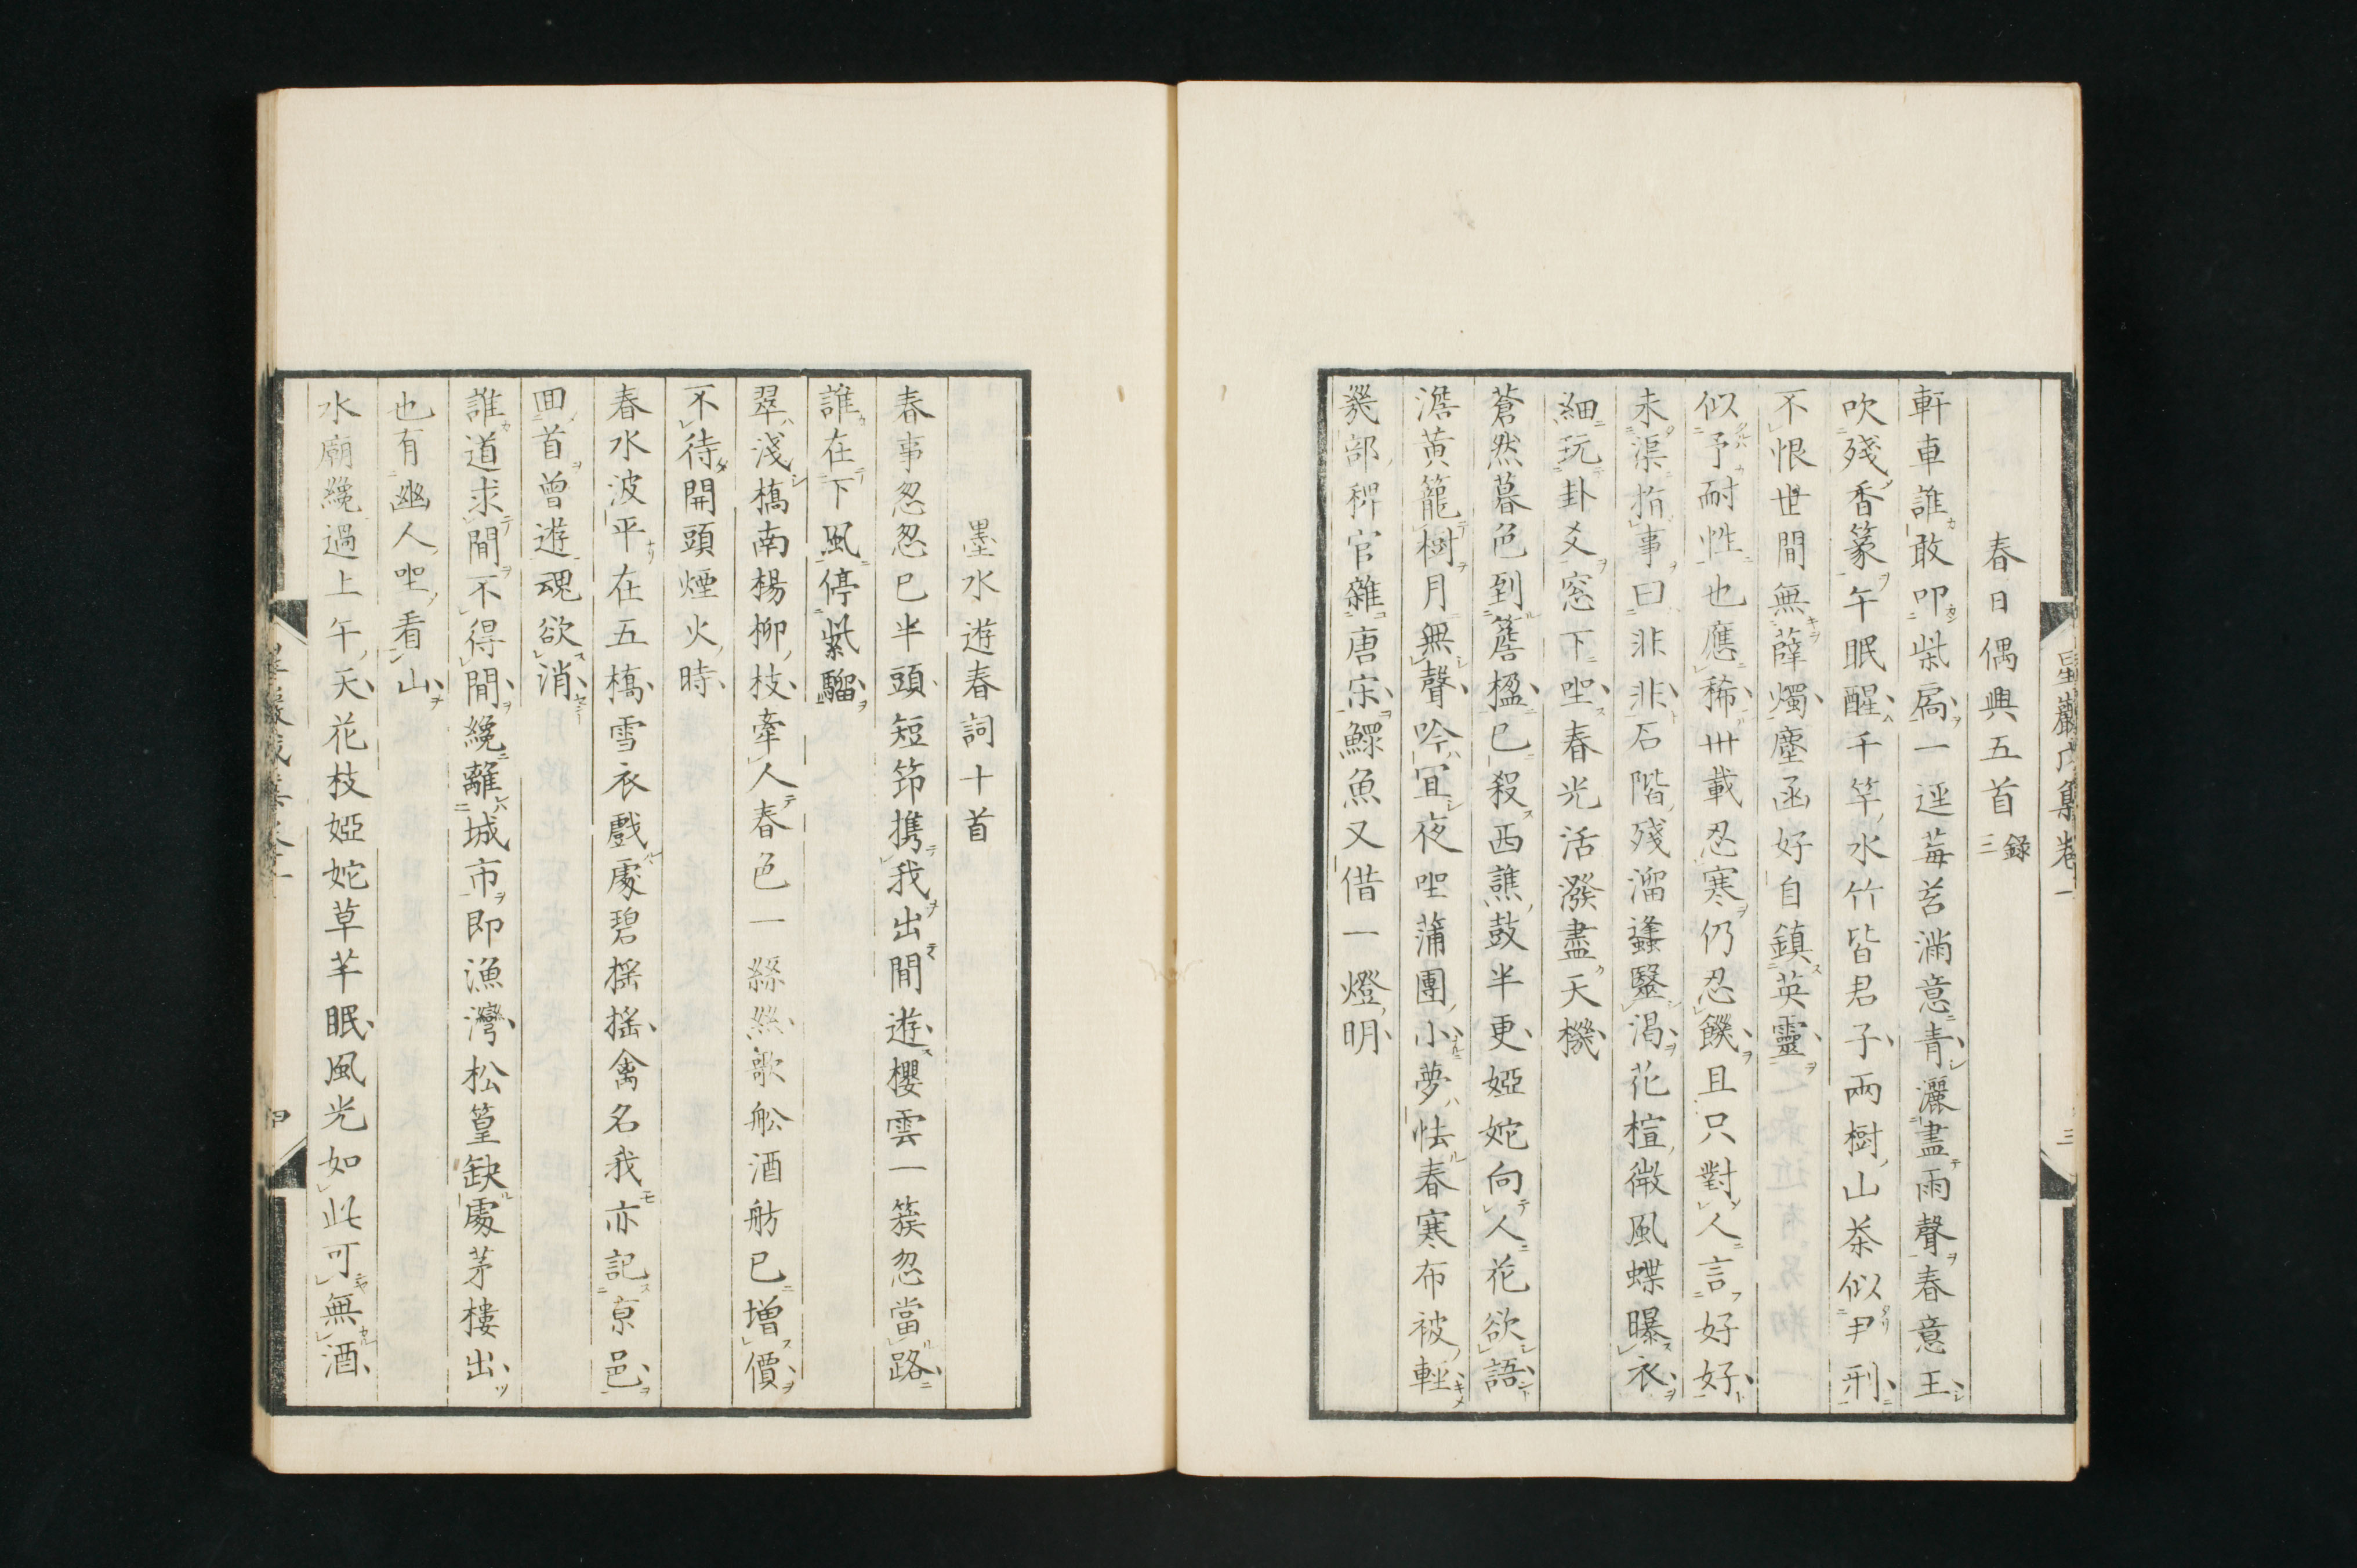 春日偶興五首 錄三
軒車誰敢叩柴扃一逕莓苔滿意青灑盡雨聲春意王
吹殘香篆午眠醒千竿水竹皆君子兩樹山茶似尹刑
不恨世間無薛燭塵函好自鎮英靈
似予耐性也應稀卅載忍寒仍忍饑且只對人言好好
未渠指事曰非非石階殘溜蜂醫渴花楦微風蝶曝衣
細玩卦爻窓下坐春光活潑盡天機
蒼然暮色到簷楹已殺西譙鼓半更婭姹向人花欲語
澹黃籠樹月無聲吟宜夜坐蒲團小夢怯春寒布被輕
幾部稗官雜唐宋鰥魚又借一燈明
三
墨水遊春詞十首
春事忽忽已半頭短筇攜我出閒遊櫻雲一簇忽當路
誰在下風停紫騮
翠淺橋南楊柳枝牽人春色一絲絲歌舩酒舫已增價
不待開頭煙火時
春水波平在五橋雪衣戲處碧搖搖禽名我亦記京邑
回首曾遊魂欲消
誰道求閒不得閒纔離城市即漁灣松篁缺處茅樓出
也有幽人坐看山
水廟纔過上午天花枝婭姹草芊眠風光如此可無酒
四